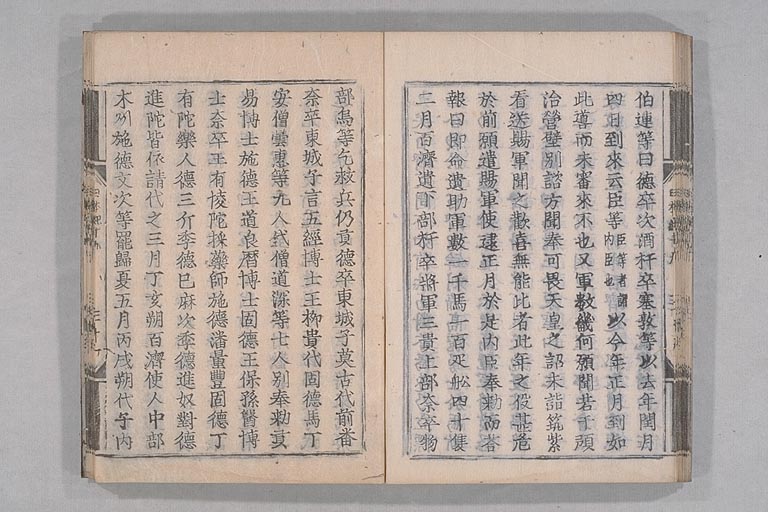 伯連等曰德卒次酒杆卒塞敦等以去年閏月
四日到來云臣等臣等者謂内臣也以今年正月到如
此噵而未審來不也又軍數幾何願聞若干頭
治營壁別諮方聞奉可畏天皇之詔来詣筑紫
看送賜軍聞之歡喜無能比者此年之役甚危
於前願遣賜軍使逮正月於是内臣奉勅而荅
報曰即令遣助軍數一千馬一百疋舩四十隻
二月百濟遣下部杆卒將軍三貴上部奈卒物
部烏等乞救兵仍貢德卒東城子莫古代前番
奈卒東城子言五經博士王柳貴代固德馬丁
安僧曇惠等九人代僧道深等七人別奉勅貢
易博士施德王道良曆博士固德王保孫醫博
士奈卒王有㥄陀採藥師施德潘量豐固德丁
有陀樂人德三斤季德己麻次季德進奴對德
進陀皆依請代之三月丁亥朔百濟使人中部
木刕施德文次等罷歸夏五月丙戌朔戊子内